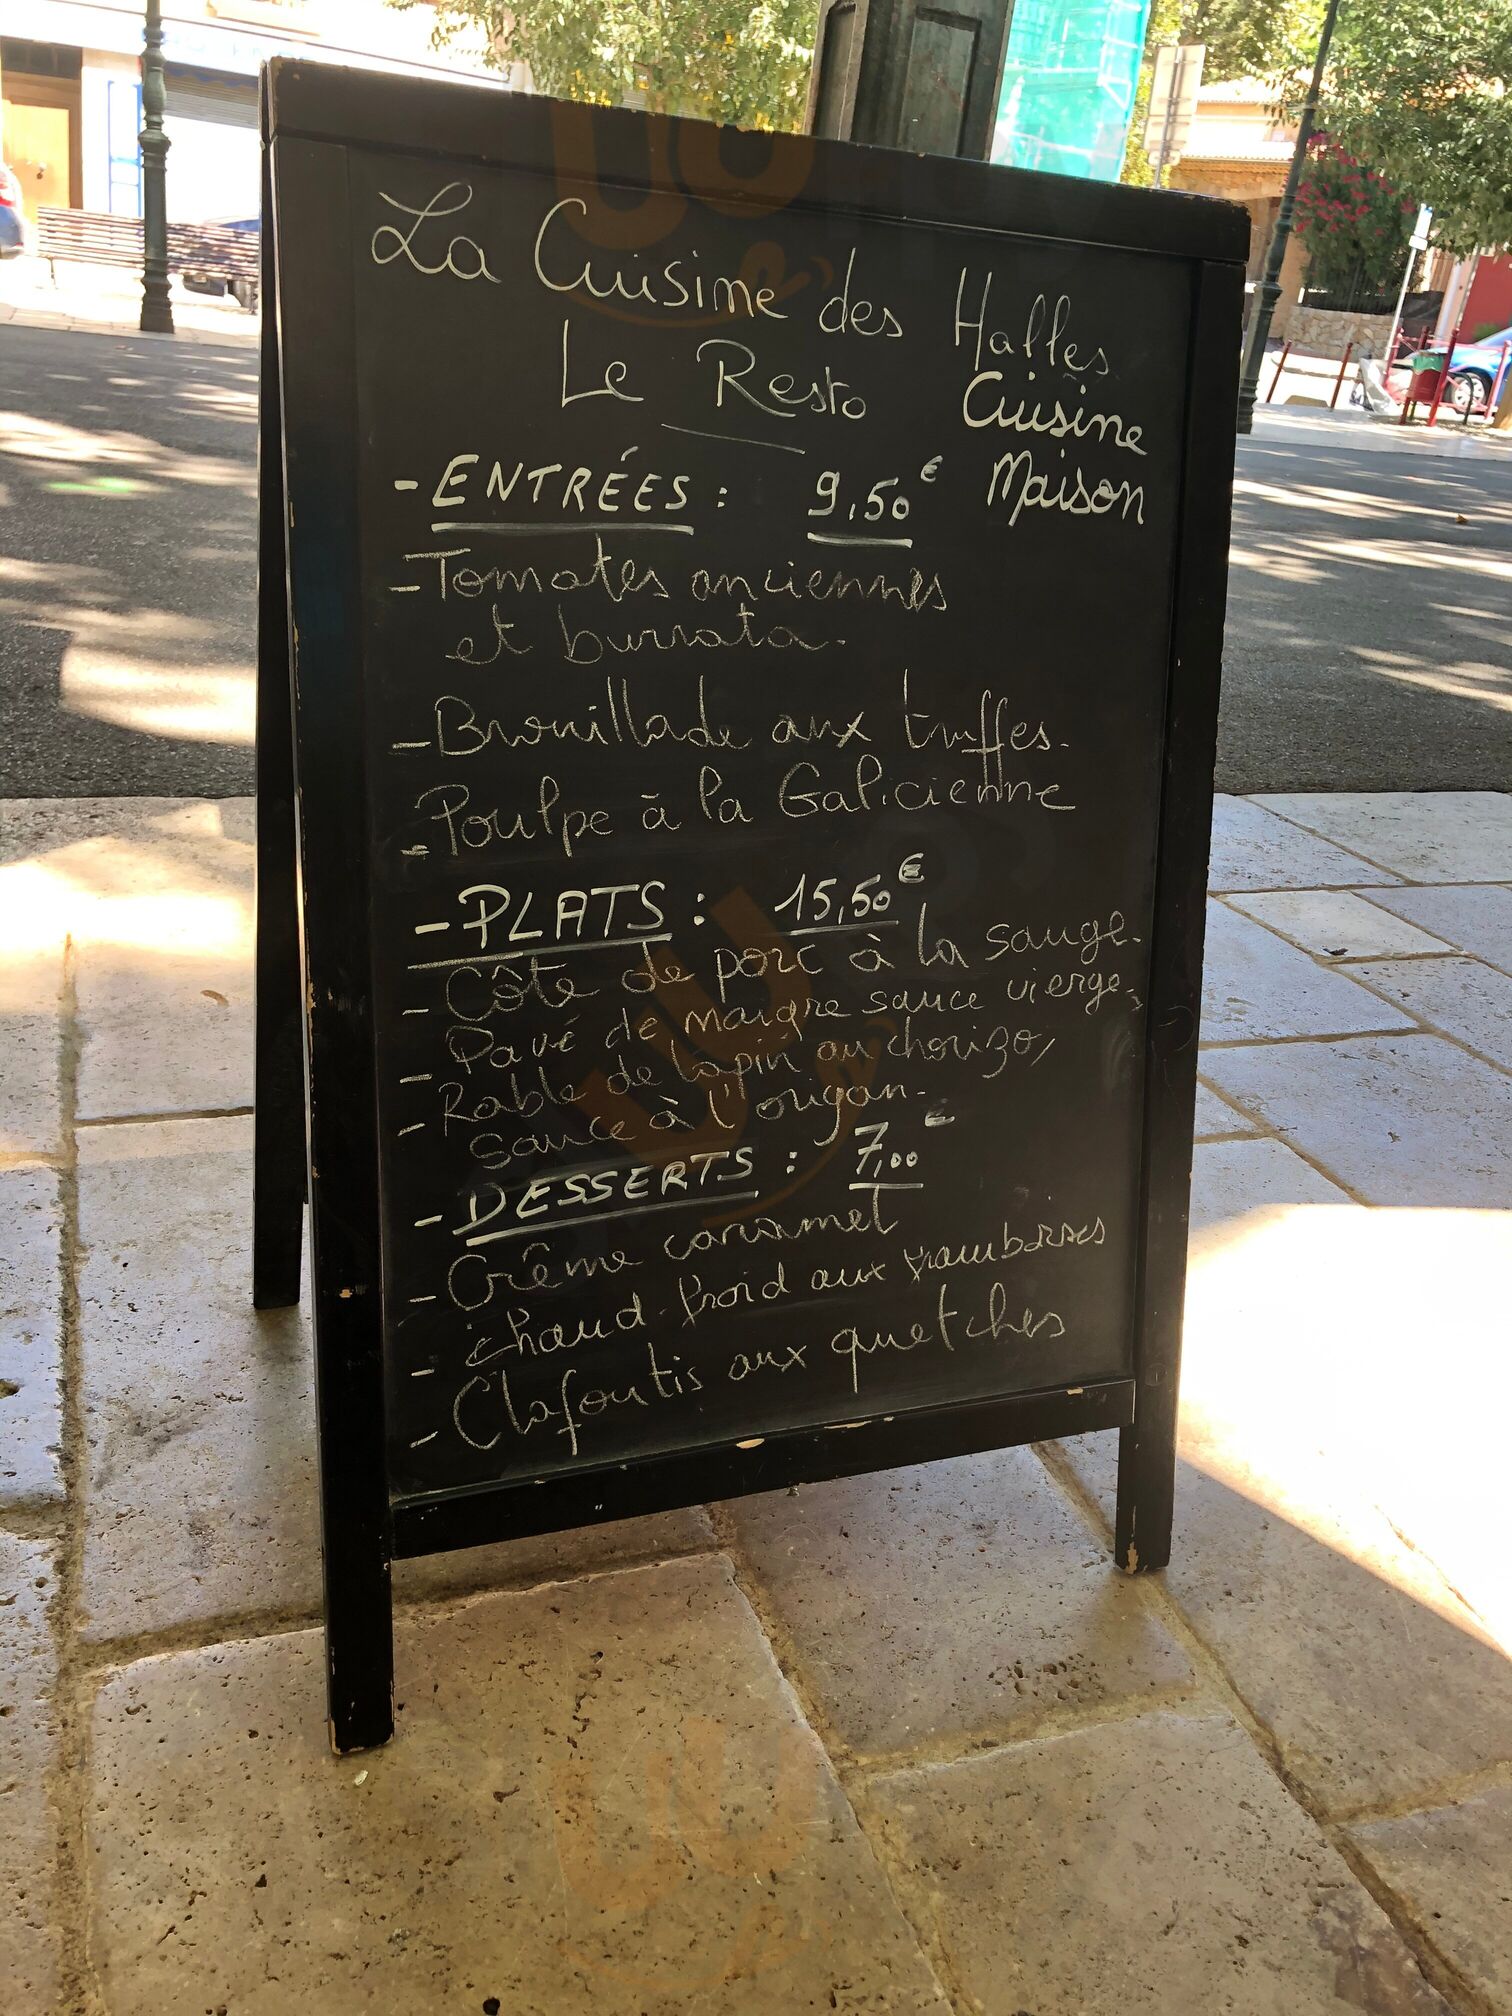 La Cuisine des Halles
Le Resto
Cuisine
Maison
- ENTRÉES : 9,50€
- Tomates anciennes
et burrata.
- Brouillade aux truffes.
- Poulpe à la Galicienne
- PLATS : 15,50€
- Côte de porc à la sauge.
- Pavé de maigre sauce vierge.
- Rable de lapin au chorizo,
sauce à l'origan.
- DESSERTS : 7,00€
- Crême caramel
- chaud-froid aux framboises
- Clafoutis aux quetches